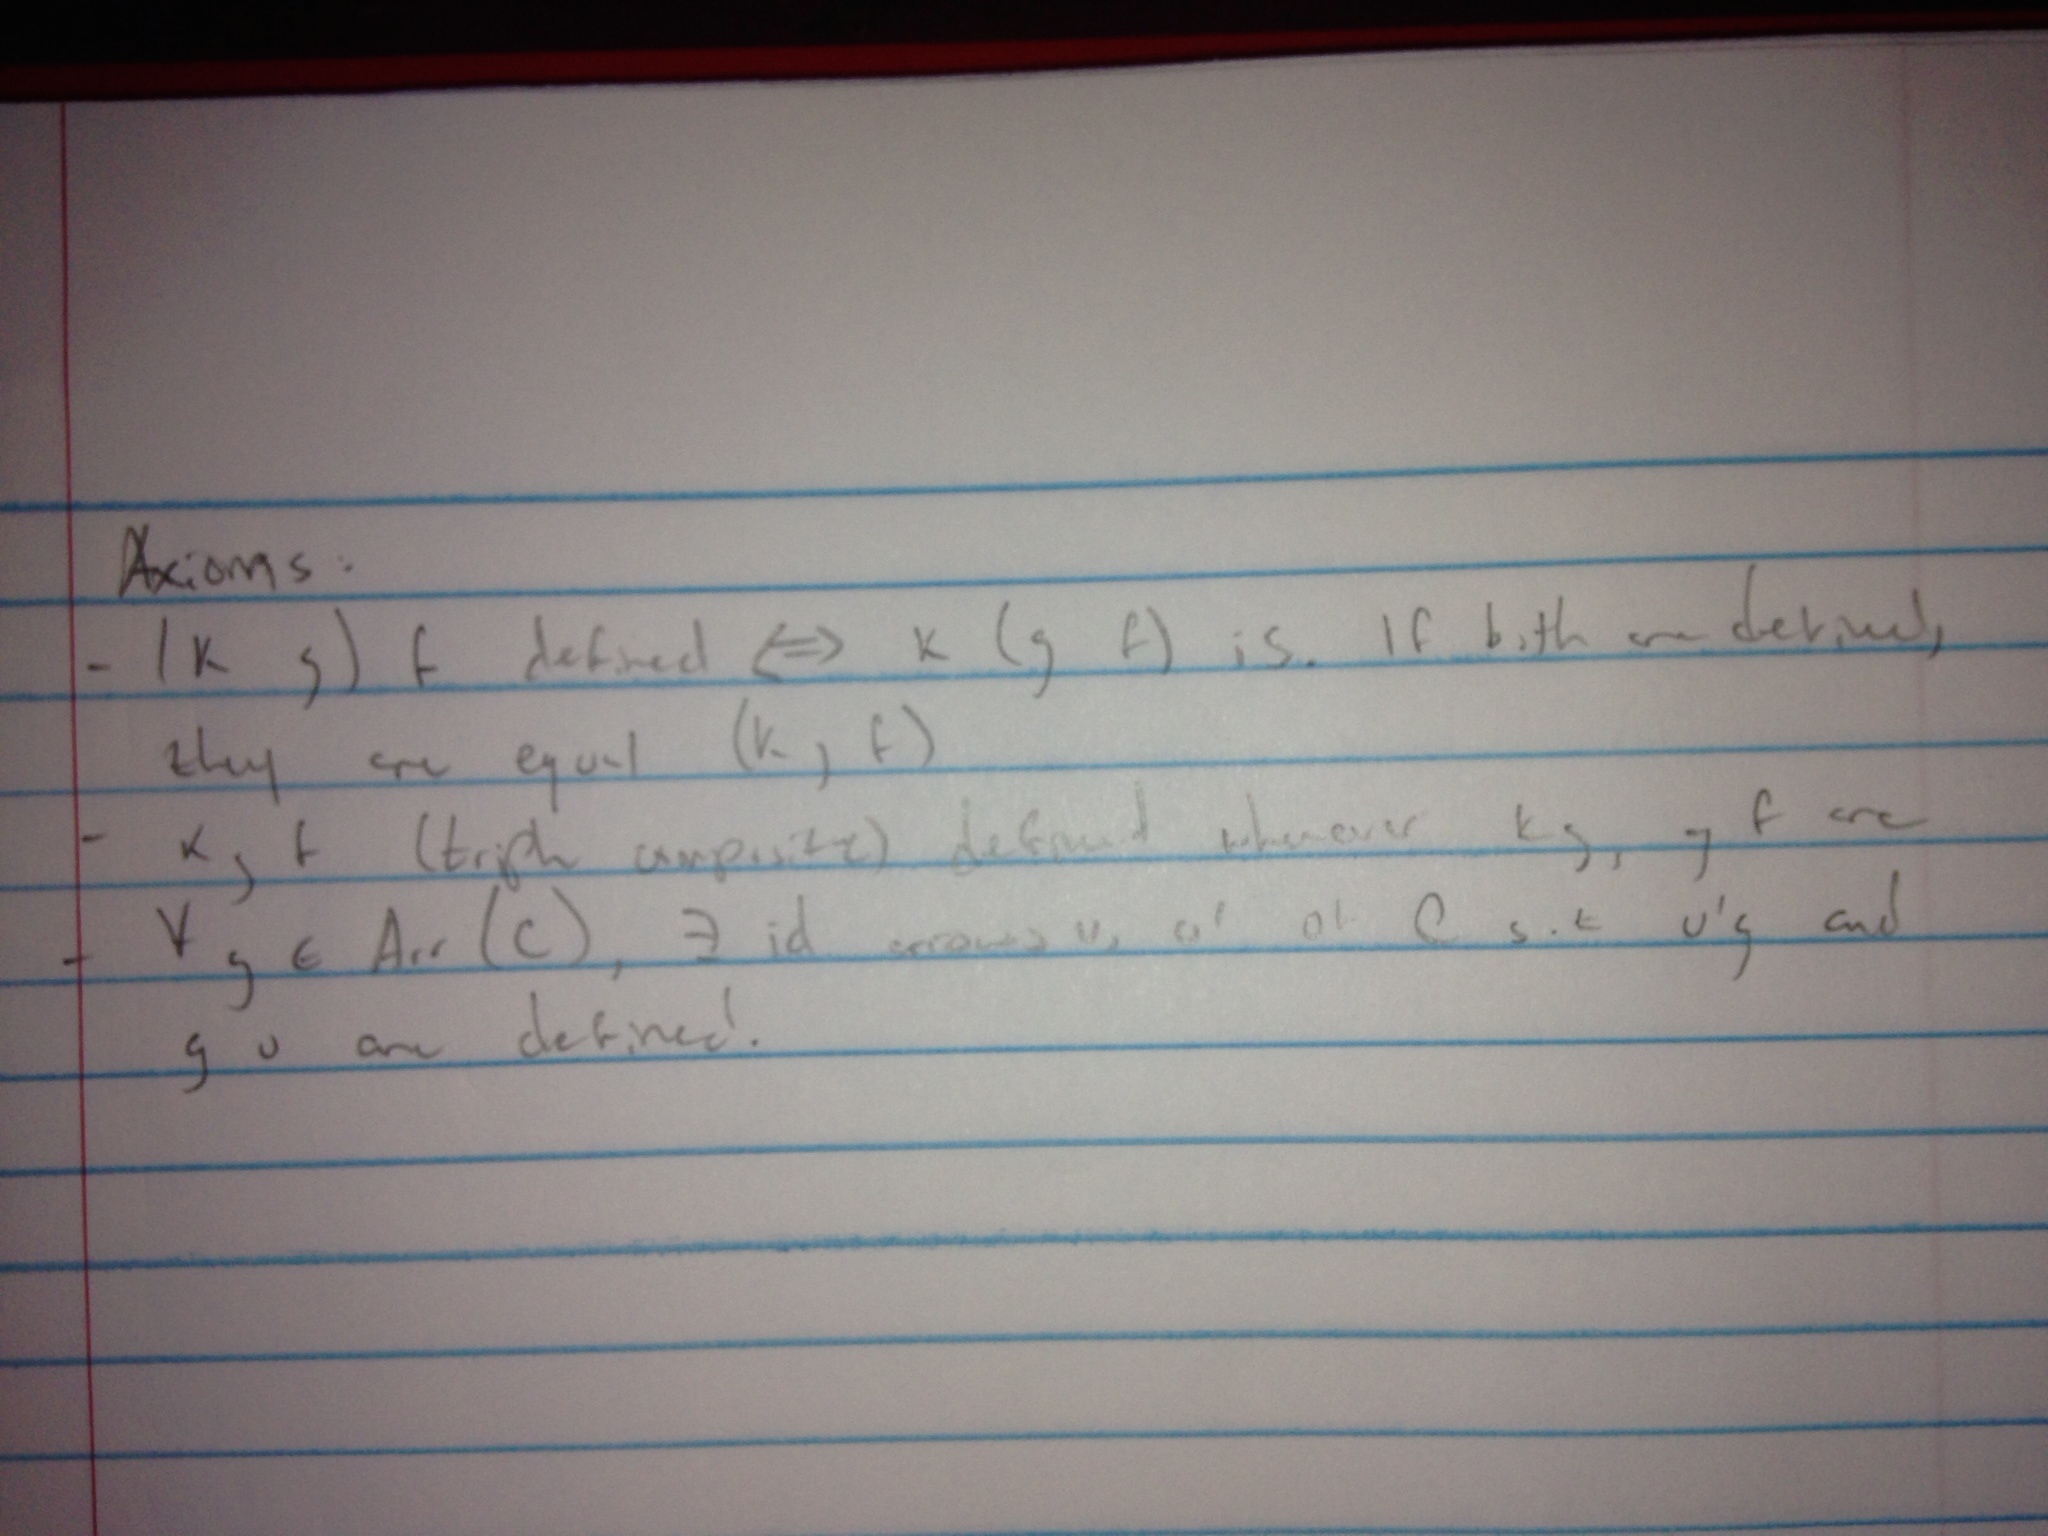 Axioms:
- (k g) f defined ⟺ k (g f) is. If both are defined,
they are equal (k g f)
- k g f (triple composite) defined whenever k g, g f are
- ∀ g ∈ Arr(C), ∃ id arrows u, u' of C s.t u'g and
g u are defined.